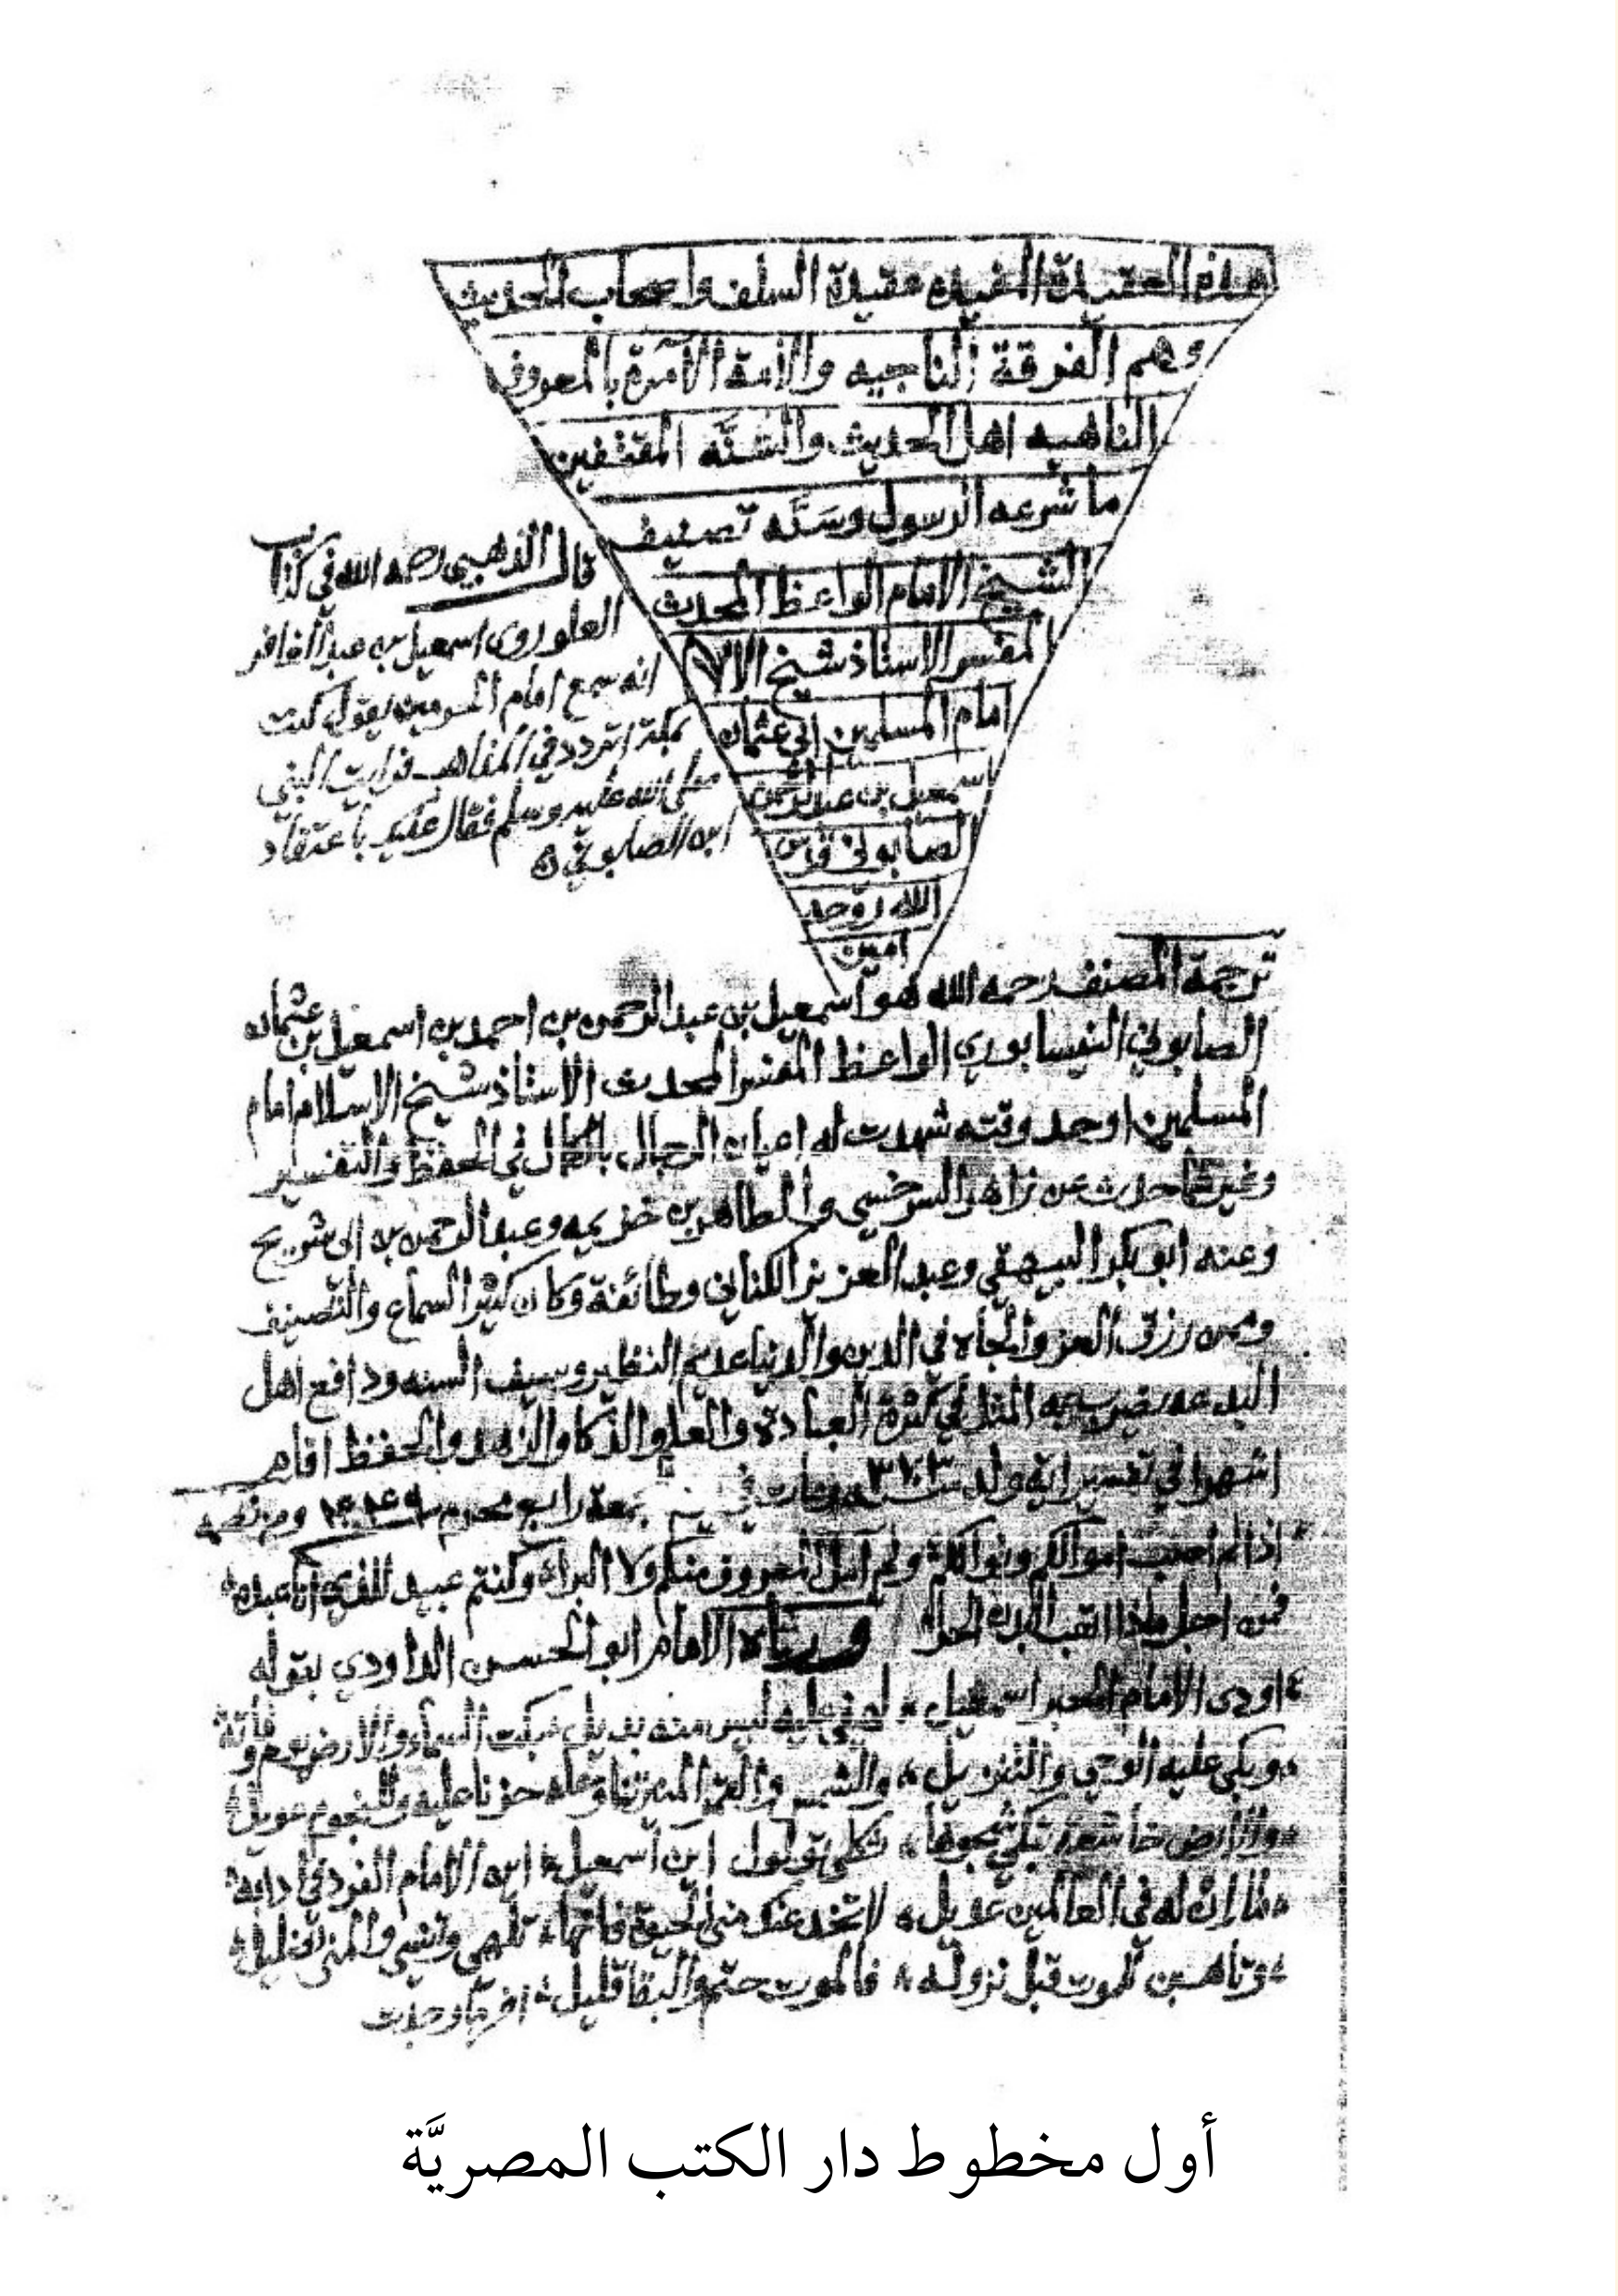 هذه العقيدة المفيده عقيدة السلف واصحاب الحديث
وهم الفرقة الناجيه والأمة الآمرة بالمعروف
الناهيه اهل الحديث والسُّنَّه المقتفين
ما شرعه الرسول وسَنَّه تصنيف
الشيخ الامام الواعظ المحدث
المفسر الاستاذ شيخ الا
امام المسلمين ابي عثمان
اسمعيل بن عبد الرحمن
الصابوني قدس
الله روحه
امين
قال الذهبي رحمه الله في كتاب
العلو روى اسمعيل بن عبد الغافر
انه سمع امام الحرمين يقول كنت
بمكة اتردد في المذاهب فرايت النبي
صلى الله عليه وسلم فقال عليك باعتقاد
ابن الصابوني
ترجمة المصنف رحمه الله هو اسمعيل بن عبد الرحمن بن احمد بن اسمعيل بن عثمان
الصابوني النيسابوري الواعظ المفسر المحدث الاستاذ شيخ الاسلام امام
المسلمين اوحد وقته شهدت له اعيان الرجال بالكمال في الحفظ والتفسير
وغيرهما حدث عن زاهر السرخسي والطاهر بن خزيمه وعبد الرحمن بن ابي شريح
وعنه ابو بكر البيهقي وعبد العزيز الكتاني وطائفة وكان كثير السماع والتصنيف
وممن رزق العز والجاه في الدين والدنيا عديم النظير وسيف السنه ودافع اهل
البدعه يضرب به المثل في كثرة العبادة والعلم والذكا والزهد والحفظ اقام
اشهرا في تفسير اية ولد سنة ٣٧٣ ومات في يوم جمعة رابع محرم سنة ٤٤٩ ومن نظمه
اذا لم اصب اموالكم ونوالكم ولم آمل المعروف منكم ولا البرا وكنتم عبيد للذي انا عبده
فمن اجل ماذا اتعب البدن الحرا ورثاه الامام ابو الحسن الداودي بقوله
اودى الامام الحبر اسمعيل لهفي عليه ليس منه بديل بكت السماء والارض يوم وفاته
وبكى عليه الوحي والتنزيل والشمس والقمر المنير تناوحا حزنا عليه وللنجوم عويل
والارض خاشعة تبكي شجوها ثكلى تولول اين اسمعيل اين الامام الفرد في ادابه
ما ان له في العالمين عديل لا تخدعنك منى الحيوة فانها تلهي وتنسي والمنى تضليل
وتاهبن للموت قبل نزوله فالموت حتم والبقا قليل اخر ما وجدت
أول مخطوط دار الكتب المصريَّة